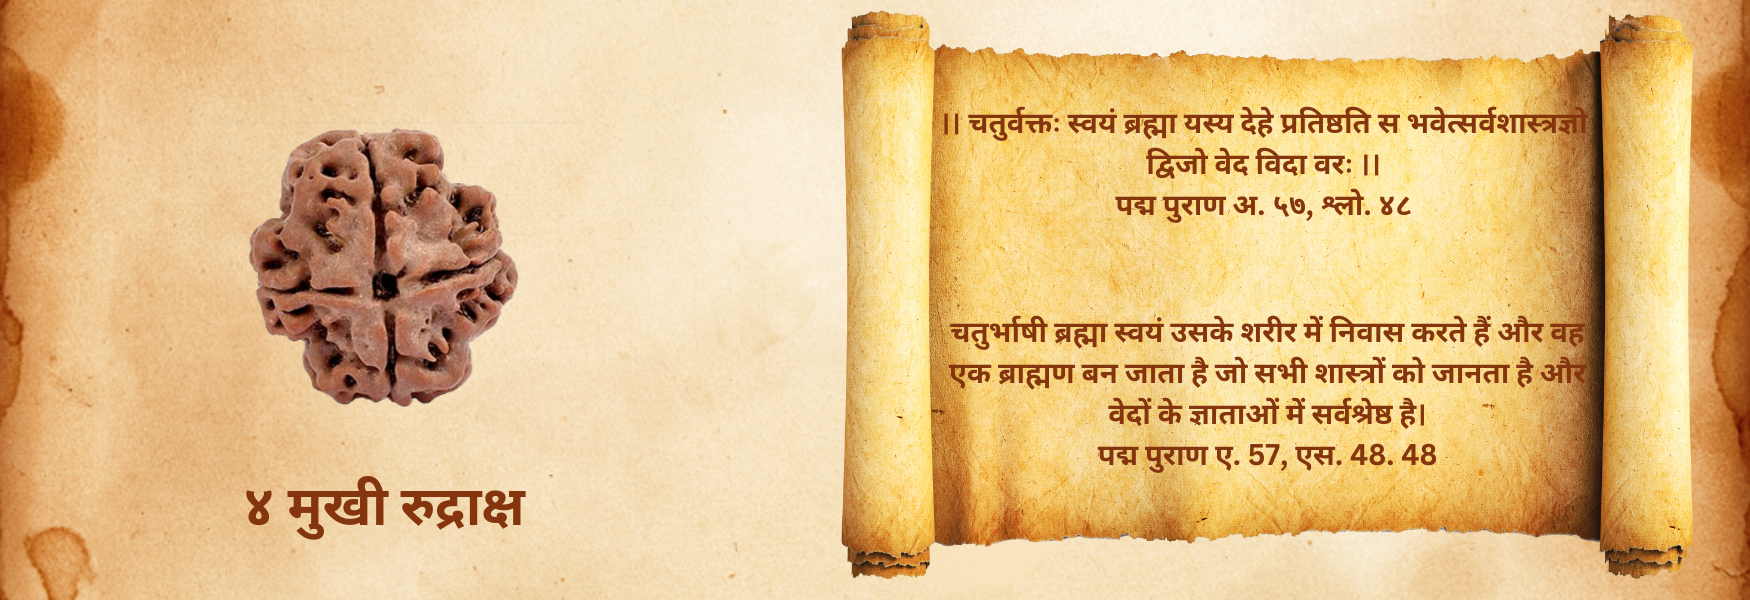 ।। चतुर्वक्तः स्वयं ब्रह्मा यस्य देहे प्रतिष्ठति स भवेत्सर्वशास्त्रज्ञो
द्विजो वेद विदा वरः ।।
पद्म पुराण अ. ५७, श्लो. ४८
चतुर्भाषी ब्रह्मा स्वयं उसके शरीर में निवास करते हैं और वह
एक ब्राह्मण बन जाता है जो सभी शास्त्रों को जानता है और
वेदों के ज्ञाताओं में सर्वश्रेष्ठ है।
पद्म पुराण ए. 57, एस. 48. 48
४ मुखी रुद्राक्ष